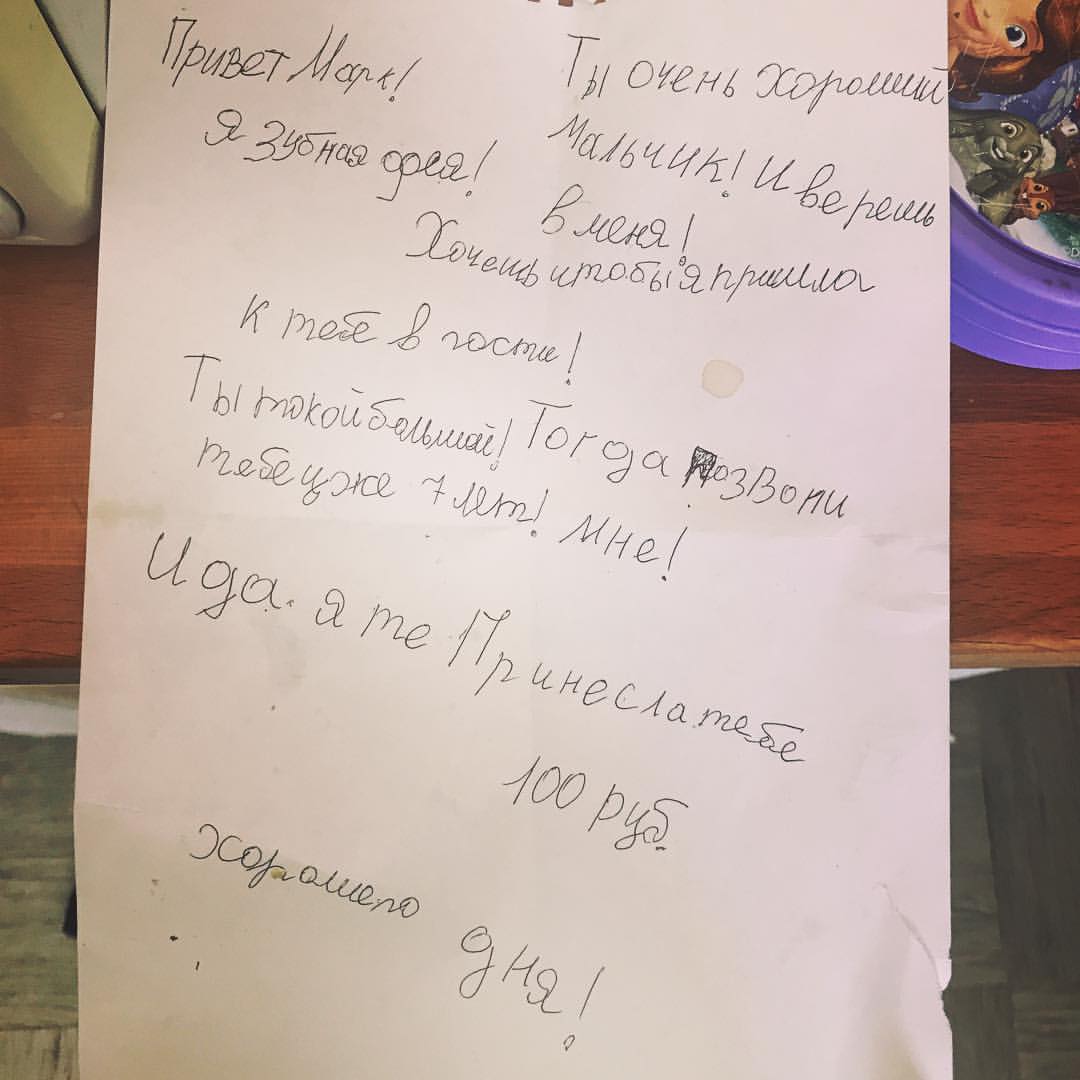 Привет Марк!
Я зубная фея!
Ты очень хороший
мальчик! И верешь
в меня!
Хочешь чтобы я пришла
к тебе в гости!
Ты такой большой!
тебе уже 7 лет!
Тогда позвони
мне!
И да. я те Принесла тебе
100 руб.
хорошего
дня!